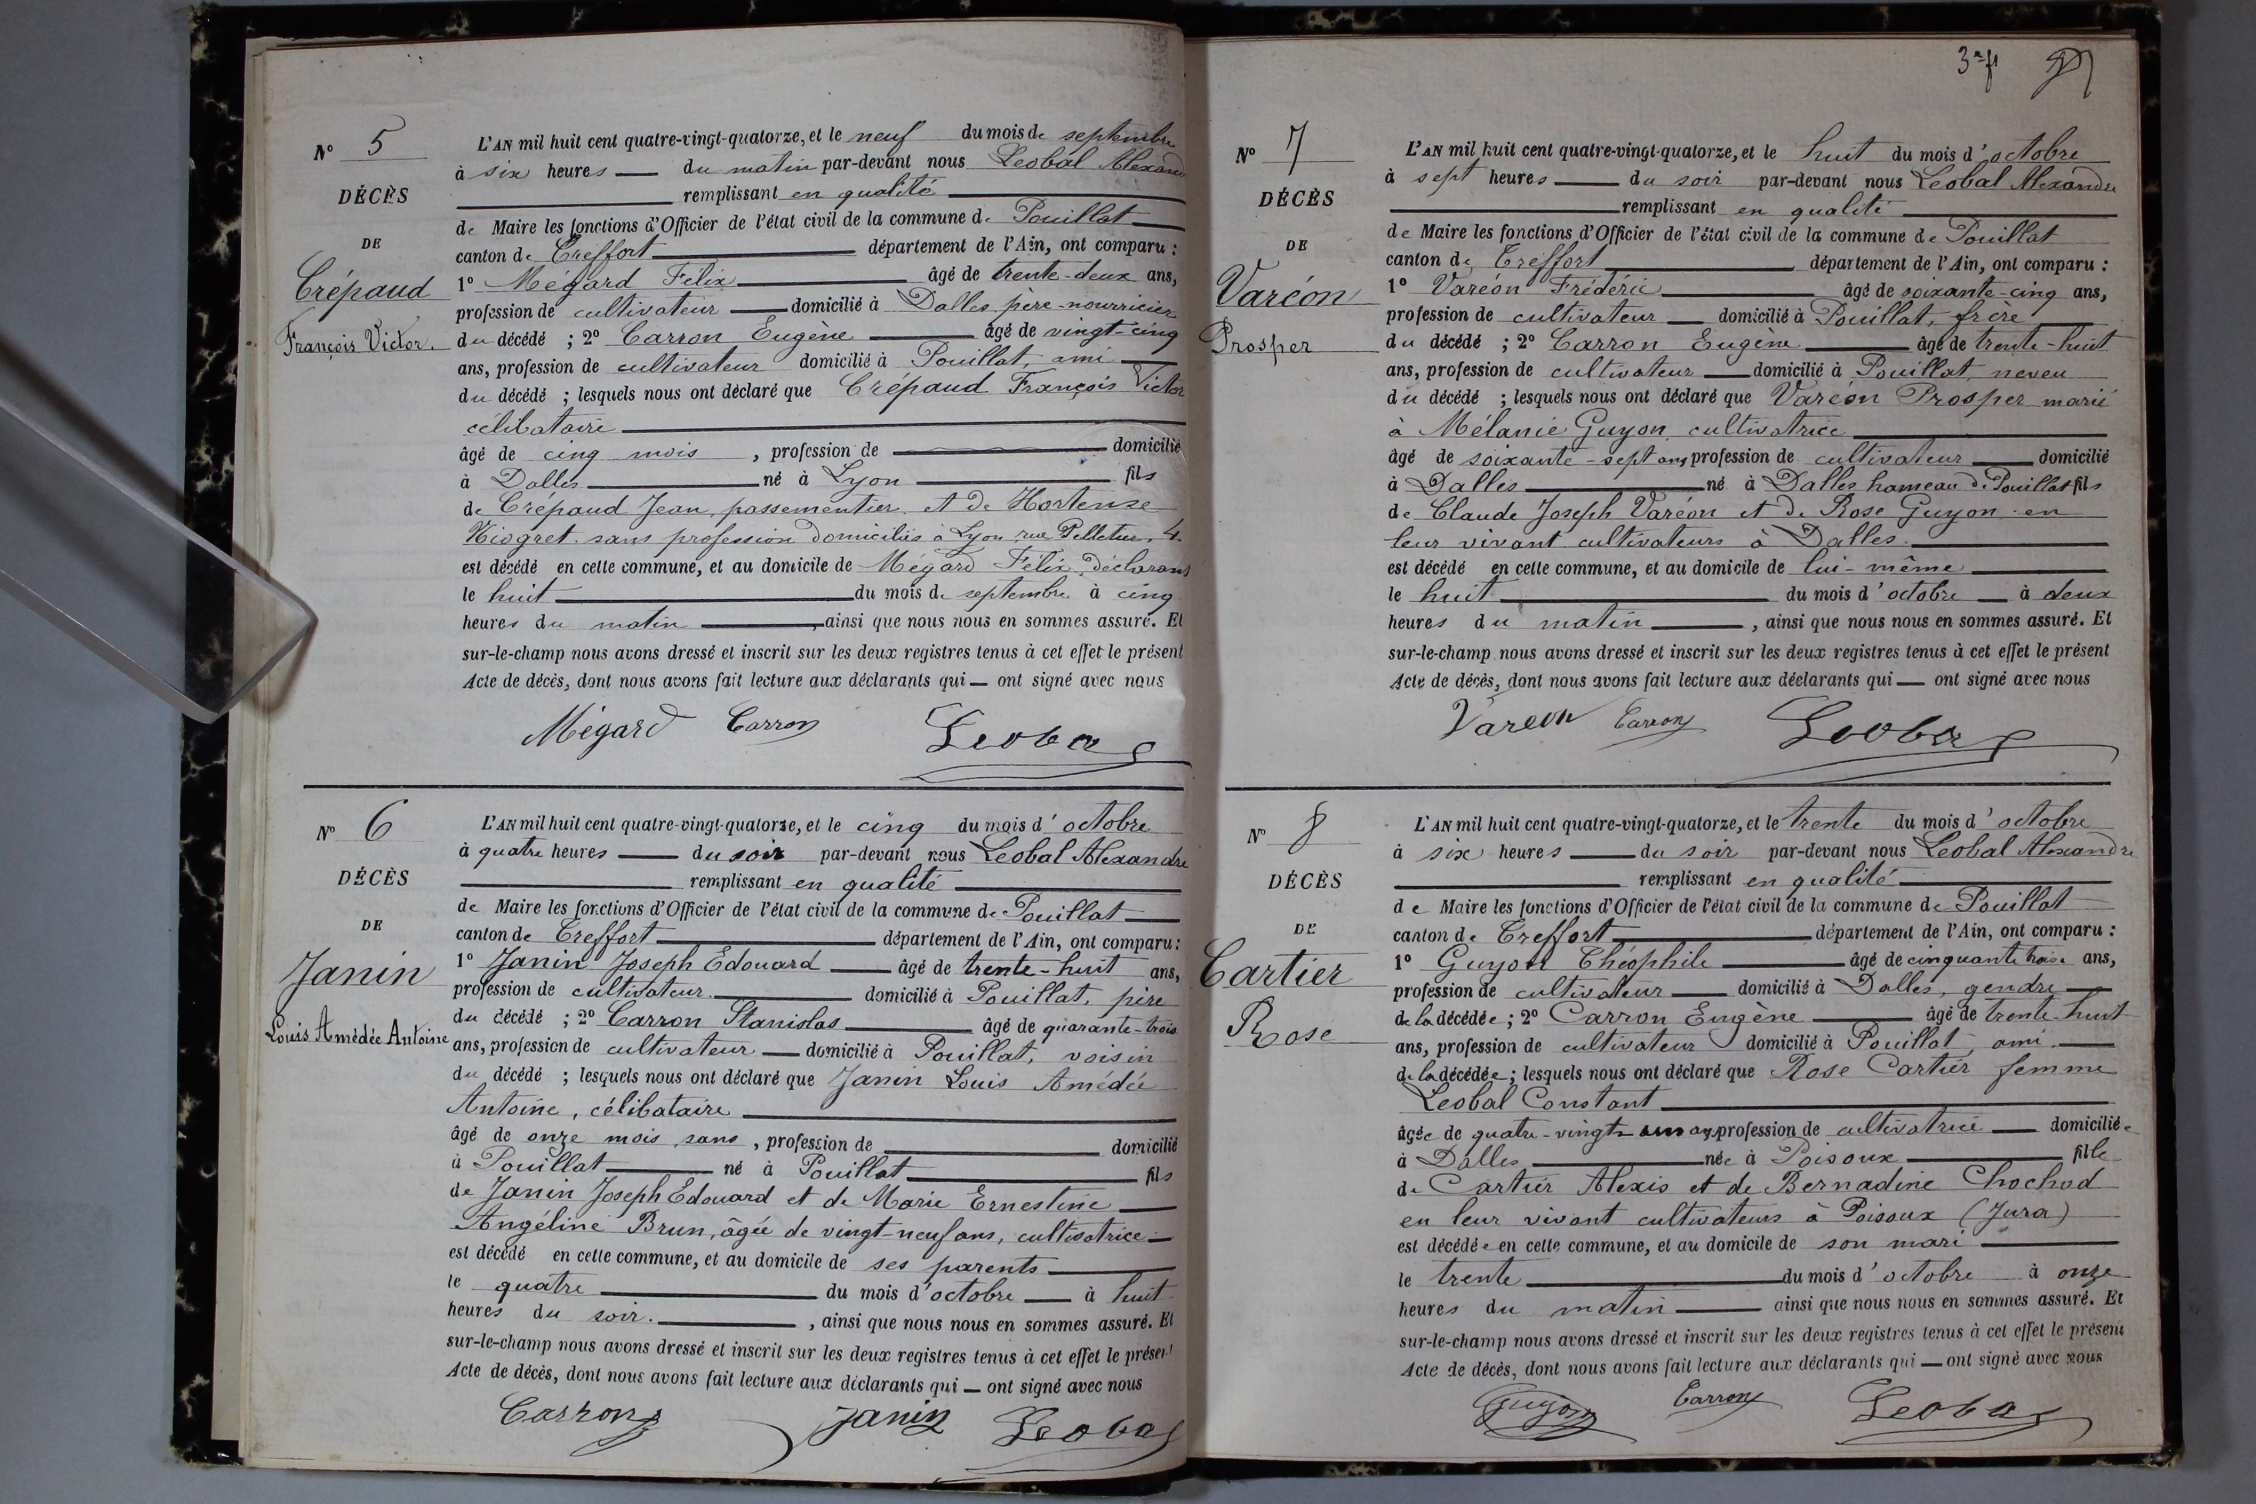 N° 5
DÉCÈS
DE
Crépaud
François Victor.
L'AN mil huit cent quatre-vingt-quatorze, et le neuf du mois de septembre
à six heures du matin par-devant nous Leobal Alexandre
remplissant en qualité
de Maire les fonctions d'Officier de l'état civil de la commune de Pouillat
canton de Treffort département de l'Ain, ont comparu :
1° Mégard Felix âgé de trente-deux ans,
profession de cultivateur domicilié à Dalles père-nourricier
du décédé ; 2° Carron Eugène âgé de vingt-cinq
ans, profession de cultivateur domicilié à Pouillat, ami
du décédé ; lesquels nous ont déclaré que Crépaud François Victor
célibataire
âgé de cinq mois , profession de domicilié
à Dalles né à Lyon fils
de Crépaud Jean, passementier et de Hortense
Niogret sans profession domiciliés à Lyon rue Pelletier, 4.
est décédé en cette commune, et au domicile de Mégard Félix, déclarant
le huit du mois de septembre à cinq
heures du matin , ainsi que nous nous en sommes assuré. Et
sur-le-champ nous avons dressé et inscrit sur les deux registres tenus à cet effet le présent
Acte de décès, dont nous avons fait lecture aux déclarants qui ont signé avec nous
Mégard Carron Leobal
N° 6
DÉCÈS
DE
Janin
Louis Amédée Antoine
L'AN mil huit cent quatre-vingt-quatorze, et le cinq du mois d'octobre
à quatre heures du soir par-devant nous Leobal Alexandre
remplissant en qualité
de Maire les fonctions d'Officier de l'état civil de la commune de Pouillat
canton de Treffort département de l'Ain, ont comparu :
1° Janin Joseph Edouard âgé de trente-huit ans,
profession de cultivateur domicilié à Pouillat, père
du décédé ; 2° Carron Stanislas âgé de quarante-trois
ans, profession de cultivateur domicilié à Pouillat, voisin
du décédé ; lesquels nous ont déclaré que Janin Louis Amédée
Antoine, célibataire
âgé de onze mois, sans , profession de domicilié
à Pouillat né à Pouillat fils
de Janin Joseph Edouard et de Marie Ernestine
Angéline Brun, âgée de vingt-neuf ans, cultivatrice
est décédé en cette commune, et au domicile de ses parents
le quatre du mois d'octobre à huit
heures du soir. , ainsi que nous nous en sommes assuré. Et
sur-le-champ nous avons dressé et inscrit sur les deux registres tenus à cet effet le présent
Acte de décès, dont nous avons fait lecture aux déclarants qui ont signé avec nous
Carron Janin Leobal
N° 7
DÉCÈS
DE
Varéon
Prosper
L'AN mil huit cent quatre-vingt-quatorze, et le huit du mois d'octobre
à sept heures du soir par-devant nous Leobal Alexandre
remplissant en qualité
de Maire les fonctions d'Officier de l'état civil de la commune de Pouillat
canton de Treffort département de l'Ain, ont comparu :
1° Varéon Frédéric âgé de soixante-cinq ans,
profession de cultivateur domicilié à Pouillat, frère
du décédé ; 2° Carron Eugène âgé de trente-huit
ans, profession de cultivateur domicilié à Pouillat, neveu
du décédé ; lesquels nous ont déclaré que Varéon Prosper marié
à Mélanie Guyon cultivatrice
âgé de soixante-sept ans, profession de cultivateur domicilié
à Dalles né à Dalles hameau de Pouillat fils
de Claude Joseph Varéon et de Rose Guyon en
leur vivant cultivateurs à Dalles.
est décédé en cette commune, et au domicile de lui-même
le huit du mois d'octobre à deux
heures du matin , ainsi que nous nous en sommes assuré. Et
sur-le-champ nous avons dressé et inscrit sur les deux registres tenus à cet effet le présent
Acte de décès, dont nous avons fait lecture aux déclarants qui ont signé avec nous
Vareon Carron Leobal
N° 8
DÉCÈS
DE
Cartier
Rose
L'AN mil huit cent quatre-vingt-quatorze, et le trente du mois d'octobre
à six heures du soir par-devant nous Leobal Alexandre
remplissant en qualité
de Maire les fonctions d'Officier de l'état civil de la commune de Pouillat
canton de Treffort département de l'Ain, ont comparu :
1° Guyon Théophile âgé de cinquante trois ans,
profession de cultivateur domicilié à Dalles, gendre
de la décédée ; 2° Carron Eugène âgé de trente-huit
ans, profession de cultivateur domicilié à Pouillat, ami.
de la décédée ; lesquels nous ont déclaré que Rose Cartier femme
Leobal Constant
âgée de quatre-vingt ans, profession de cultivatrice domiciliée
à Dalles née à Poisoux fille
de Cartier Alexis et de Bernadine Chochod
en leur vivant cultivateurs à Poisoux (Jura)
est décédée en cette commune, et au domicile de son mari
le trente du mois d'octobre à onze
heures du matin ainsi que nous nous en sommes assuré. Et
sur-le-champ nous avons dressé et inscrit sur les deux registres tenus à cet effet le présent
Acte de décès, dont nous avons fait lecture aux déclarants qui ont signé avec nous
Guyon Carron Leobal